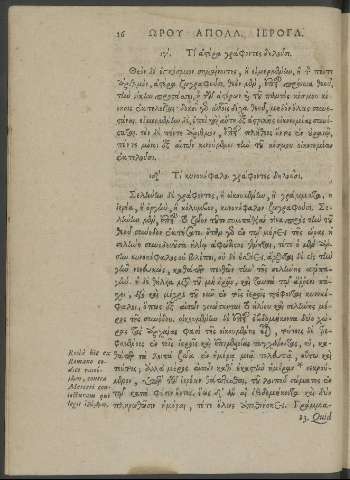 16 ΩΡΟΥ ΑΠΟΛΛ. ΙΕΡΟΓΛ.
ιγ. Τί ἀστέρα γράφοντες δηλοῦσι.
Θεὸν δὲ ἐγκόσμιον σημαίνοντες, ἢ εἱμαρμένην, ἢ τὸν πέντε
ἀριθμὸν, ἀστέρα ζωγραφοῦσι. θεὸν μὲν, ἐπειδὴ πρόνοια θεοῦ,
τὴν νίκην προστάσσει, ᾗ τῶν ἀστέρων καὶ τοῦ παντὸς κόσμου κί-
νησις ἐκτελεῖται· δοκεῖ γὰρ αὐτοῖς δίχα θεοῦ, μηδὲν ὅλως συνε-
στάναι. εἱμαρμένην δὲ, ἐπεὶ καὶ αὕτη ἐξ ἀστρικῆς οἰκονομίας συνί-
σταται. τὸν δὲ πέντε ἀριθμὸν, ἐπειδὴ πλήθους ὄντος ἐν οὐρανῷ,
πέντε μόνοι ἐξ αὐτῶν κινούμενοι τὴν τοῦ κόσμου οἰκονομίαν
ἐκτελοῦσι.
ιδ. Τί κυνοκέφαλον γράφοντες δηλοῦσι.
Σελήνην δὲ γράφοντες, ἢ οἰκουμένην, ἢ γράμματα, ἢ
ἱερέα, ἢ ὀργὴν, ἢ κόλυμβον, κυνοκέφαλον ζωγραφοῦσι. Σε-
λήνην μὲν, ἐπειδὴ τὸ ζῷον τοῦτο συμπάθειάν τινα πρὸς τὴν τοῦ
θεοῦ σύνοδον ἐκτήσατο. ὅταν γὰρ ἐν τῷ μέρει τῆς ὥρας ἡ
σελήνη συνοδεύουσα ἡλίῳ ἀφώτιστος γένηται, τότε ὁ μὲν ἄρ-
σην κυνοκέφαλος οὐ βλέπει, οὐδὲ ἐσθίει, ἄχθεται δὲ εἰς τὴν
γῆν νενευκὼς, καθάπερ πενθῶν τὴν τῆς σελήνης ἁρπα-
γήν. ἡ δὲ θήλεια μετὰ τοῦ μὴ ὁρᾶν, καὶ ταὐτὰ τῷ ἄρσενι πά-
καὶ μέχρι τοῦ νῦν ἐν τοῖς ἱεροῖς τρέφονται κυνοκέ-
φαλοι, ὅπως ἐξ αὐτῶν γινώσκηται τὸ ἡλίου καὶ σελήνης μέ-
ρος τῆς συνόδου. οἰκουμένην δὲ ἐπειδὴ ἑβδομήκοντα δύο χώ-
ρας τὰς ἀρχαίας φασὶ τῆς οἰκουμένης εἶναι, τούτους δὲ τρε-
φομένους ἐν τοῖς ἱεροῖς καὶ ἐπιμελείας τυγχάνοντας, οὐ, κα-
θάπερ τὰ λοιπὰ ζῷα ἐν ἡμέρᾳ μιᾷ τελευτᾷ, οὕτω καὶ
τούτους· ἀλλὰ μέρος αὐτῶν καθ᾽ ἑκάστην ἡμέραν νεκρού-
μενον, ὑπὸ τῶν ἱερέων θάπτεσθαι, τοῦ λοιποῦ σώματος ἐν
τῇ κατὰ φύσιν ὄντος, ἕως δ᾽ ἂν αἱ ἑβδομήκοντα καὶ δύο
πληρωθῶσιν ἡμέραι, τότε ὅλος ἀποθνήσκει. Γράμμα-
23. Quid
ex
Romano co-
dice
contra
Merceri con-
iecturam qui
legit